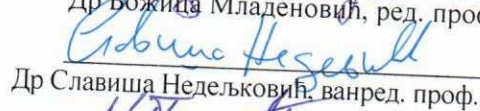 Др Божица Младеновић, ред. проф
Др Славиша Недељковић, ванред. проф.